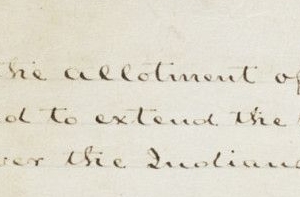 the allotment of
d to extend the
ver the Indians